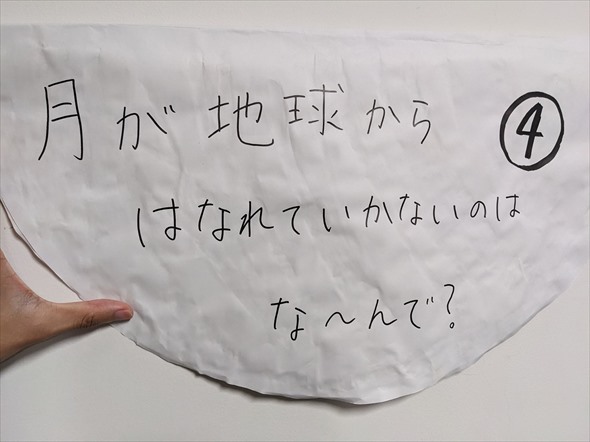 月が地球から ④
はなれていかないのは
な〜んで?